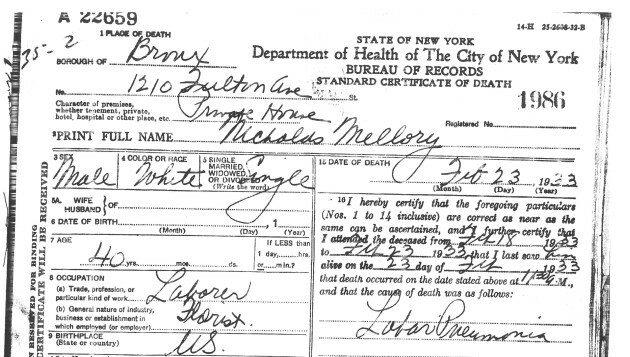 A 22659
14-H 25-2608-32-B
35-2
1 PLACE OF DEATH
STATE OF NEW YORK
BOROUGH OF Bronx
Department of Health of The City of New York
BUREAU OF RECORDS
No. 1210 Fulton Ave St.
STANDARD CERTIFICATE OF DEATH
Character of premises,
whether tenement, private,
hotel, hospital or other place, etc. Private House
1986
Registered No.
PRINT FULL NAME Nicholas Mellory
3 SEX
Male
4 COLOR OR RACE
White
5 SINGLE
MARRIED,
WIDOWED,
OR DIVORCED
(Write the word)
Single
15 DATE OF DEATH
Feb 23 1933
(Month) (Day) (Year)
5A WIFE
HUSBAND OF
6 DATE OF BIRTH , 1
(Month) (Day) (Year)
7 AGE
40 yrs. mos. ds.
If LESS than
1 day, hrs.
or min.?
8 OCCUPATION
(a) Trade, profession, or
particular kind of work Laborer
(b) General nature of industry,
business or establishment in
which employed (or employer) Florist
9 BIRTHPLACE
(State or country) U.S.
16 I hereby certify that the foregoing particulars
(Nos. 1 to 14 inclusive) are correct as near as the
same can be ascertained, and I further certify that
I attended the deceased from Feb 18 1933
to Feb 23 1933 that I last saw
alive on the 23 day of Feb 1933
that death occurred on the date stated above at M.,
and that the cause of death was as follows:
Lobar Pneumonia
N RESERVED FOR BINDING
CERTIFICATE WILL BE RECEIVED